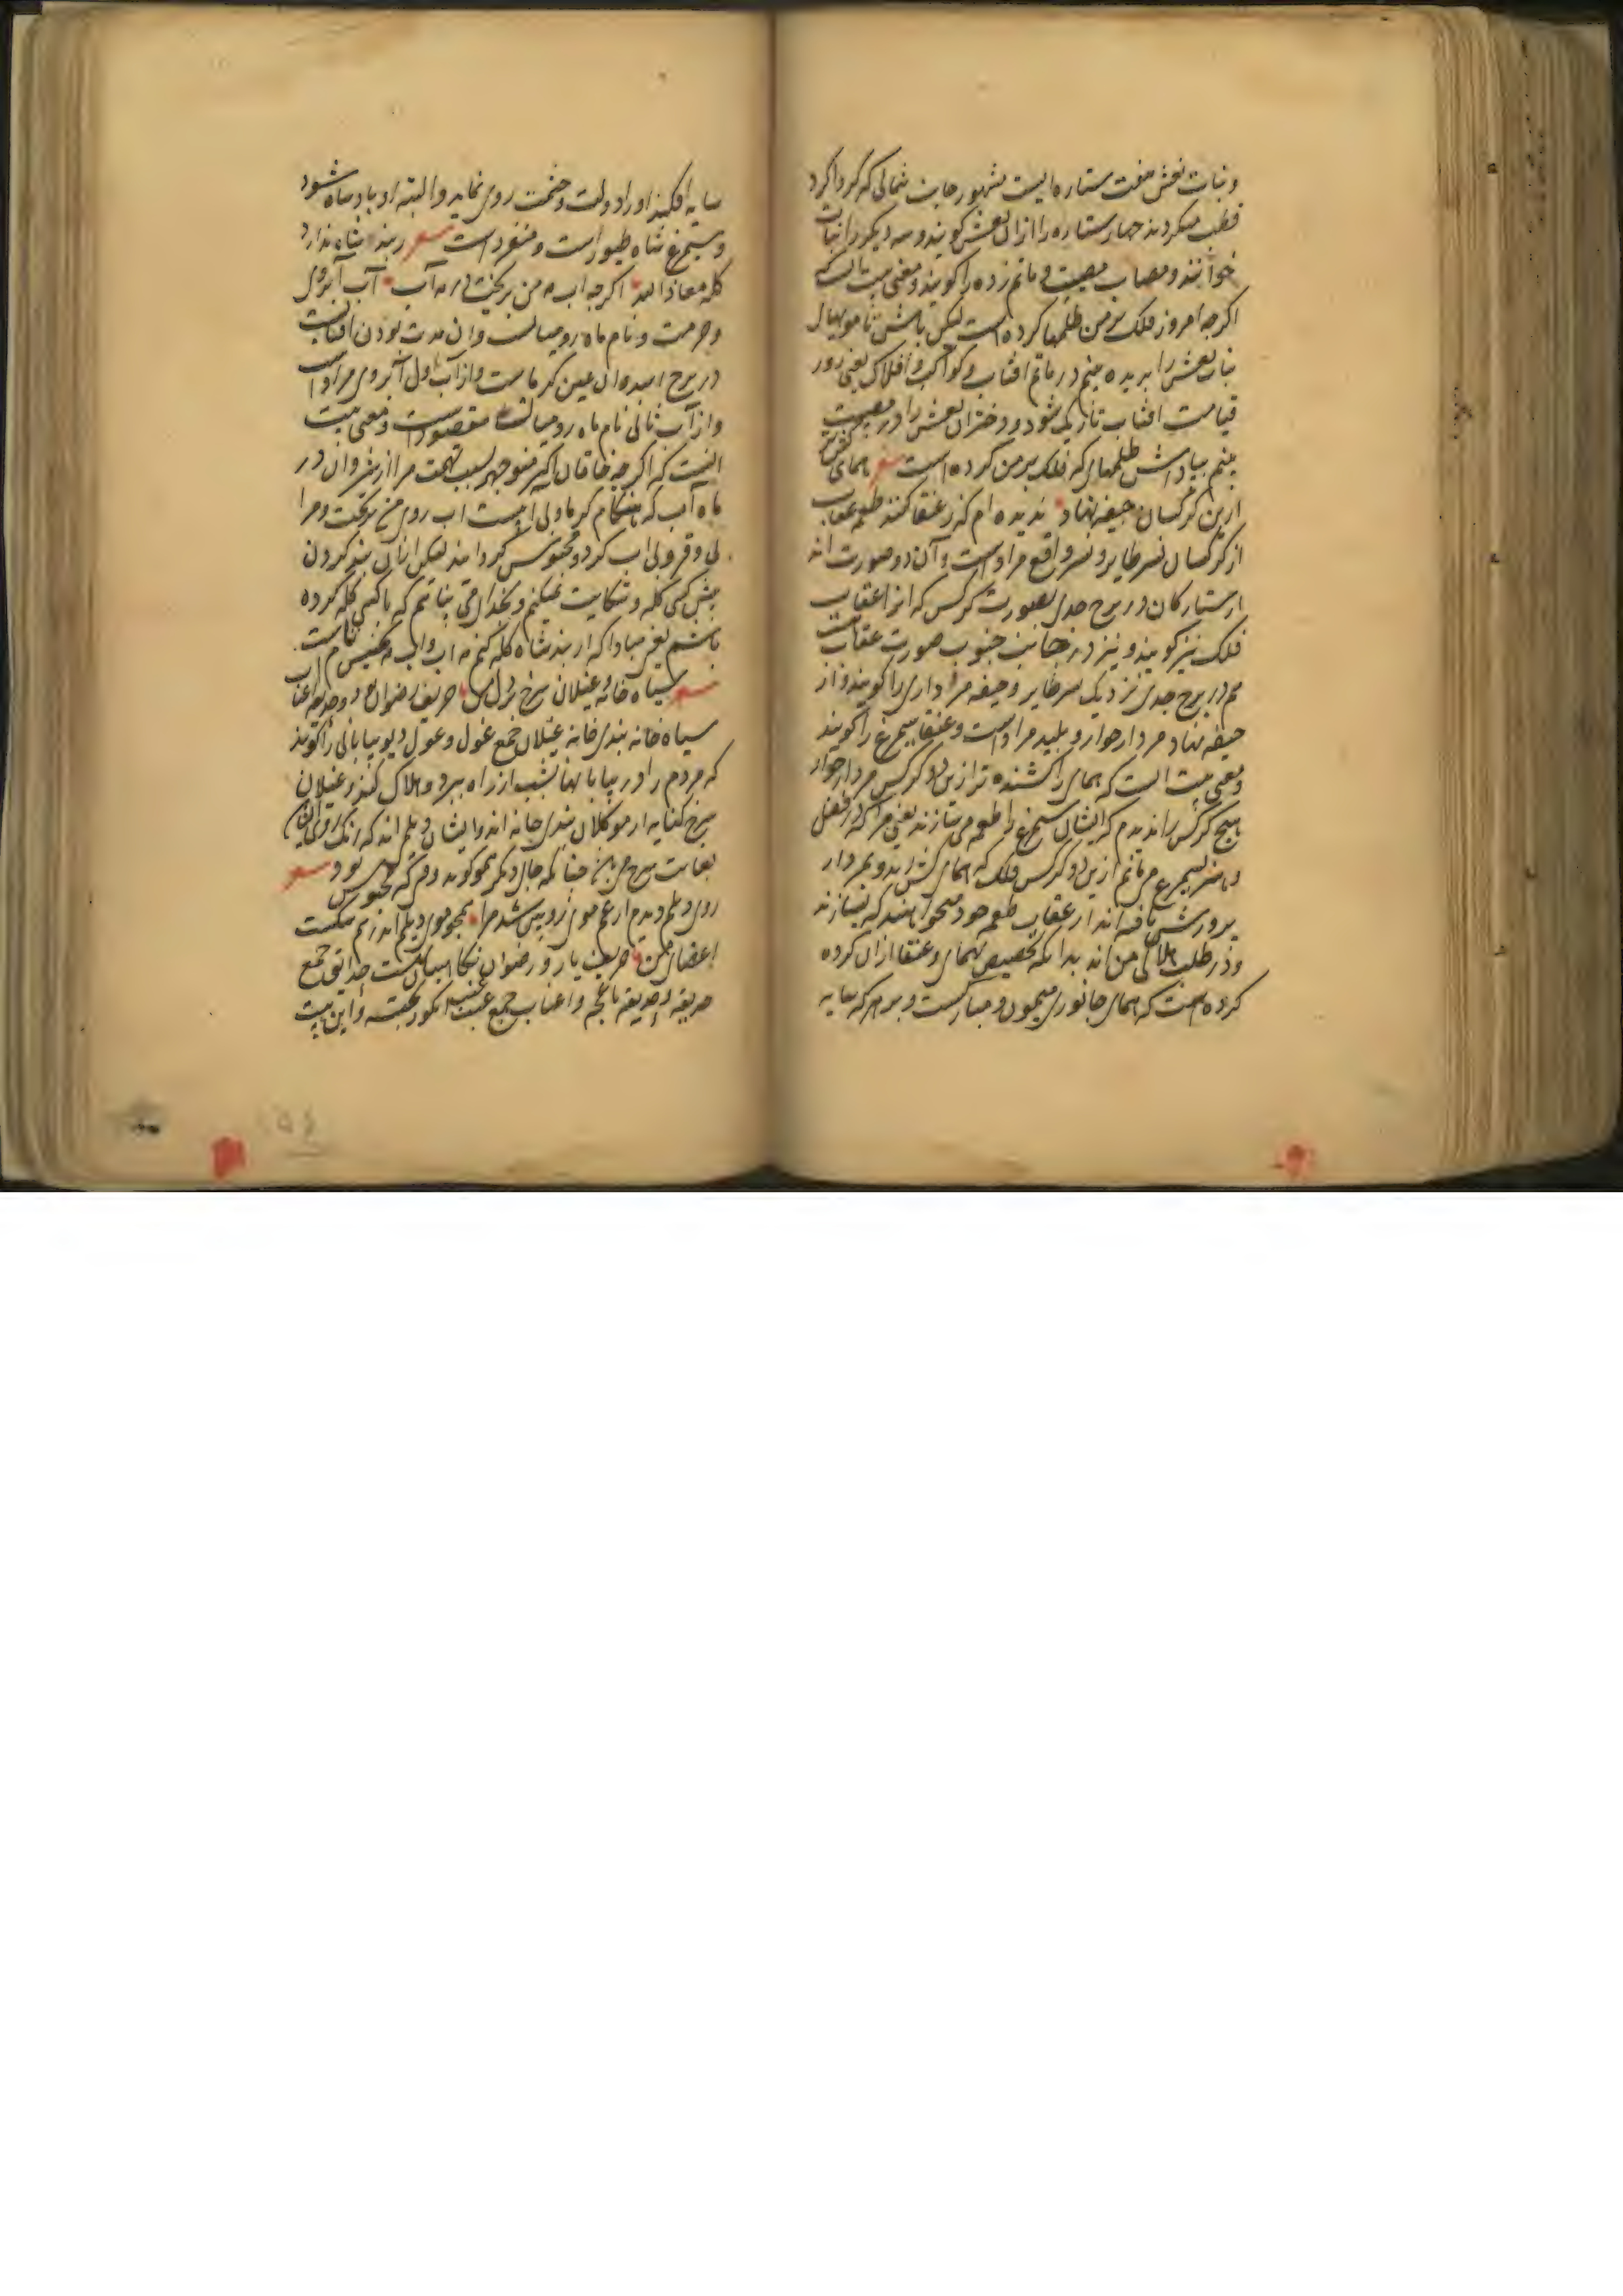 و نبات نعش هفت ستاره ایست مشهور جانب شمالی که کرداکرد
قطب میکردند چهار ستاره را ازان نعش کویند و سه دیکر را نبات
خوانند و مصاب مصیبت و ماتم زده را کویند و معنی بیت انست که
اکرچه امروز فلک بر من ظلمها کرده است لیکن باش تا
نبات نعش را بریده بینم در ماتم افتاب و کواکب و افلاک یعنی روز
قیامت افتاب تاریک شود و دختران نعش را در مصیبت
بینم بپاداش ظلمهای که فلک بر من کرده است شعر همای
ازین کرکسان جیفه نهاد ندیده ام که ز عنقا کنند طعم عقاب
از کرکسان نسر طایر و نسر واقع مراد است و آن دو صورت اند
از ستارکان در برج جدی بصورت کرکس که انرا عقاب
فلک نیز کویند و نیز در جانب جنوب صورت عقاب
هم در برج جدی نزدیک نسر طایر و جیفه مرداری را کویند و از
جیفه نهاد مردار خوار و پلید مراد است و عنقا سیمرغ را کویند
و معنی بیت انست که همای را کشنده تر ازین دو کرکس مردار خوار
هیچ کرکس را ندیدم که ایشان سیمرغ را طعمه می سازند یعنی مرا که در فضل
و هنر سیمرغ می مانم ازین دو کرکس فلک که همای کش اند و بمردار
پرورش یافته اند از عقاب طعم خود میخواهند که بسازند
و در طلب هلاکی من اند بدانکه تخصیص همای و عنقا ازان کرده
کرده است که همای جانوری میمون و مبارکست و بر هر که سایه
سایه افکند او را دولت و حشمت روی نماید و البته او پادشاه شود
و سیمرغ شاه طیور است و منفرد است شعر ز بند شاه ندارد
کله معاذ الله اکرچه اب من بریخت در مه آب آب آبروی
و حرمت و نام ماه رومیانست و ان مدت بودن افتابست
در برج اسد و ان عین کرماست و از آب اول آبروی مراد است
و از آب ثانی نام ماه رومیانست مقصود است و معنی بیت
انست که اکرچه خاقان اکبر منوچهر بسبب تهمت مرا از شروان در
ماه آب که هنکام کرما و بی ابیست اب روی من بریخت و مرا
بی وقر و بی اب کرد و محبوس کردانید لیکن ازان بند کردن
پیش کس کله و شکایت نمیکنم و بخدای می پناهم که با کس کله کرده
باشم یعنی مبادا که از بند شاه کله کنم مه اب و اب مه تجنیس تام است
شعر سیاه خانه و غیلان سرخ بر دل من حریف رضوان بود و حدیقه اعناب
سیاه خانه بندی خانه غیلان جمع غول و غول دیو بیابانی را کویند
که مردم را در بیابانها بشب از راه ببرد و هلاک کند و غیلان
سرخ کنایه از موکلان بندی خانه اند و ایشان دیلم اند که رنک روی ایشان
بغایت سرخ می چنانکه جای دیکر هم کوید وقتی که محبوس بود شعر
روی دیلم دیدم از غم موی زوبین شد مرا همچو موی دیلم اندر هم شکست
اعضای من حریف یار و رضوان نکاهبان بهشت حدایق جمع
حدیقه و حدیقه باغچه و اعناب جمع عنب عنب انکور پخته و این بیت